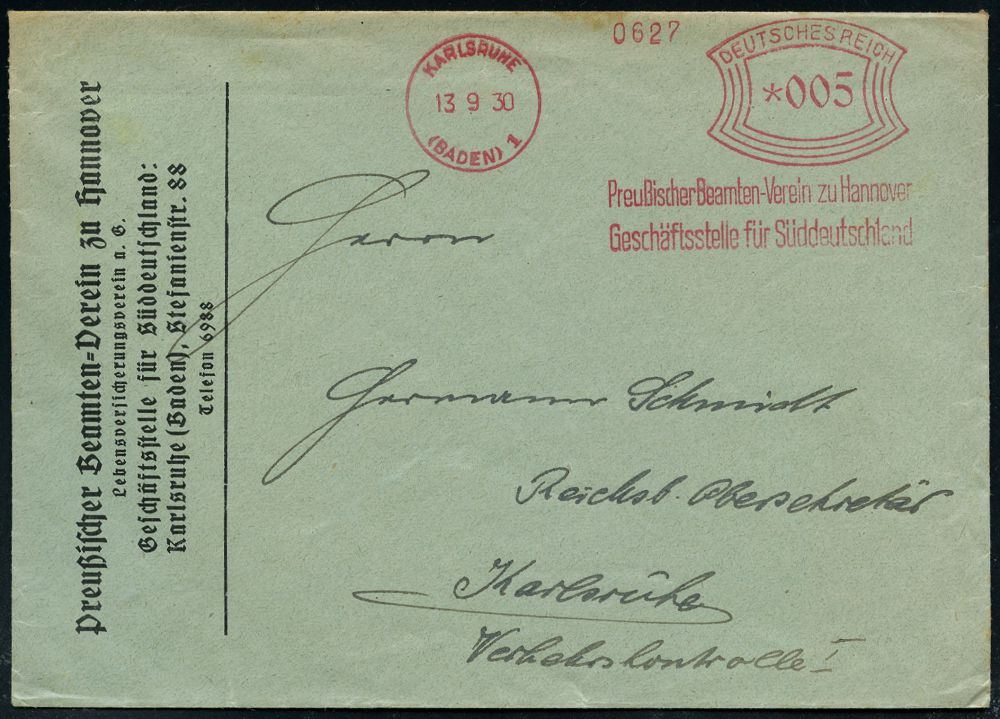 Preußischer Beamten-Verein zu Hannover
Lebensversicherungsverein a. G.
Geschäftsstelle für Süddeutschland:
Karlsruhe (Baden), Stefanienstr. 88
Telefon 6988
KARLSRUHE
13 9 30
(BADEN) 1
0627
DEUTSCHES REICH
*005
Preußischer Beamten-Verein zu Hannover
Geschäftsstelle für Süddeutschland
Herrn
Hermann Schmidt
Reichsb. Obersekretär
Karlsruhe
Verkehrskontrolle I